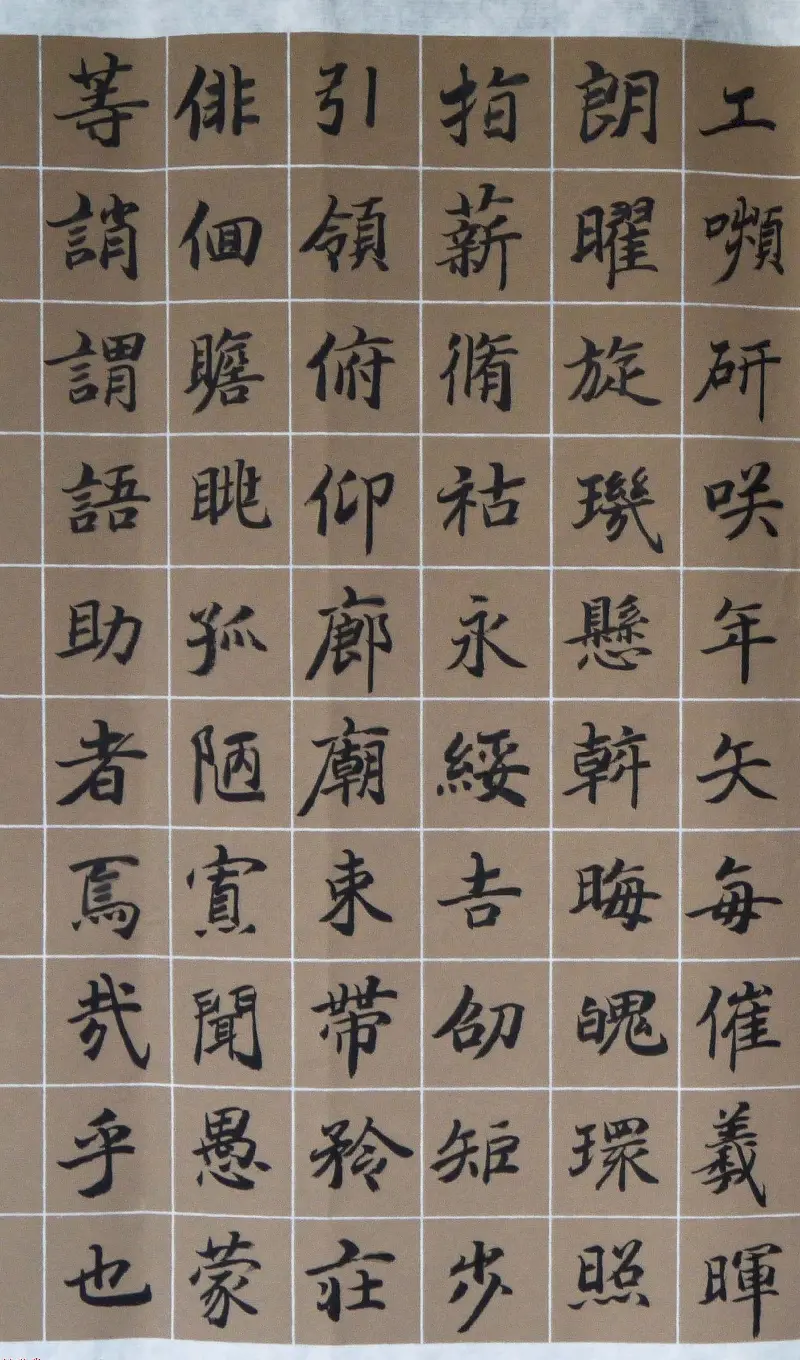 工嚬研咲年矢每催羲暉
朗曜旋璣懸斡晦魄環照
指薪脩祜永綏吉劭矩步
引領俯仰廊廟束帶矜莊
俳佪瞻眺孤陋寡聞愚蒙
等誚謂語助者焉哉乎也